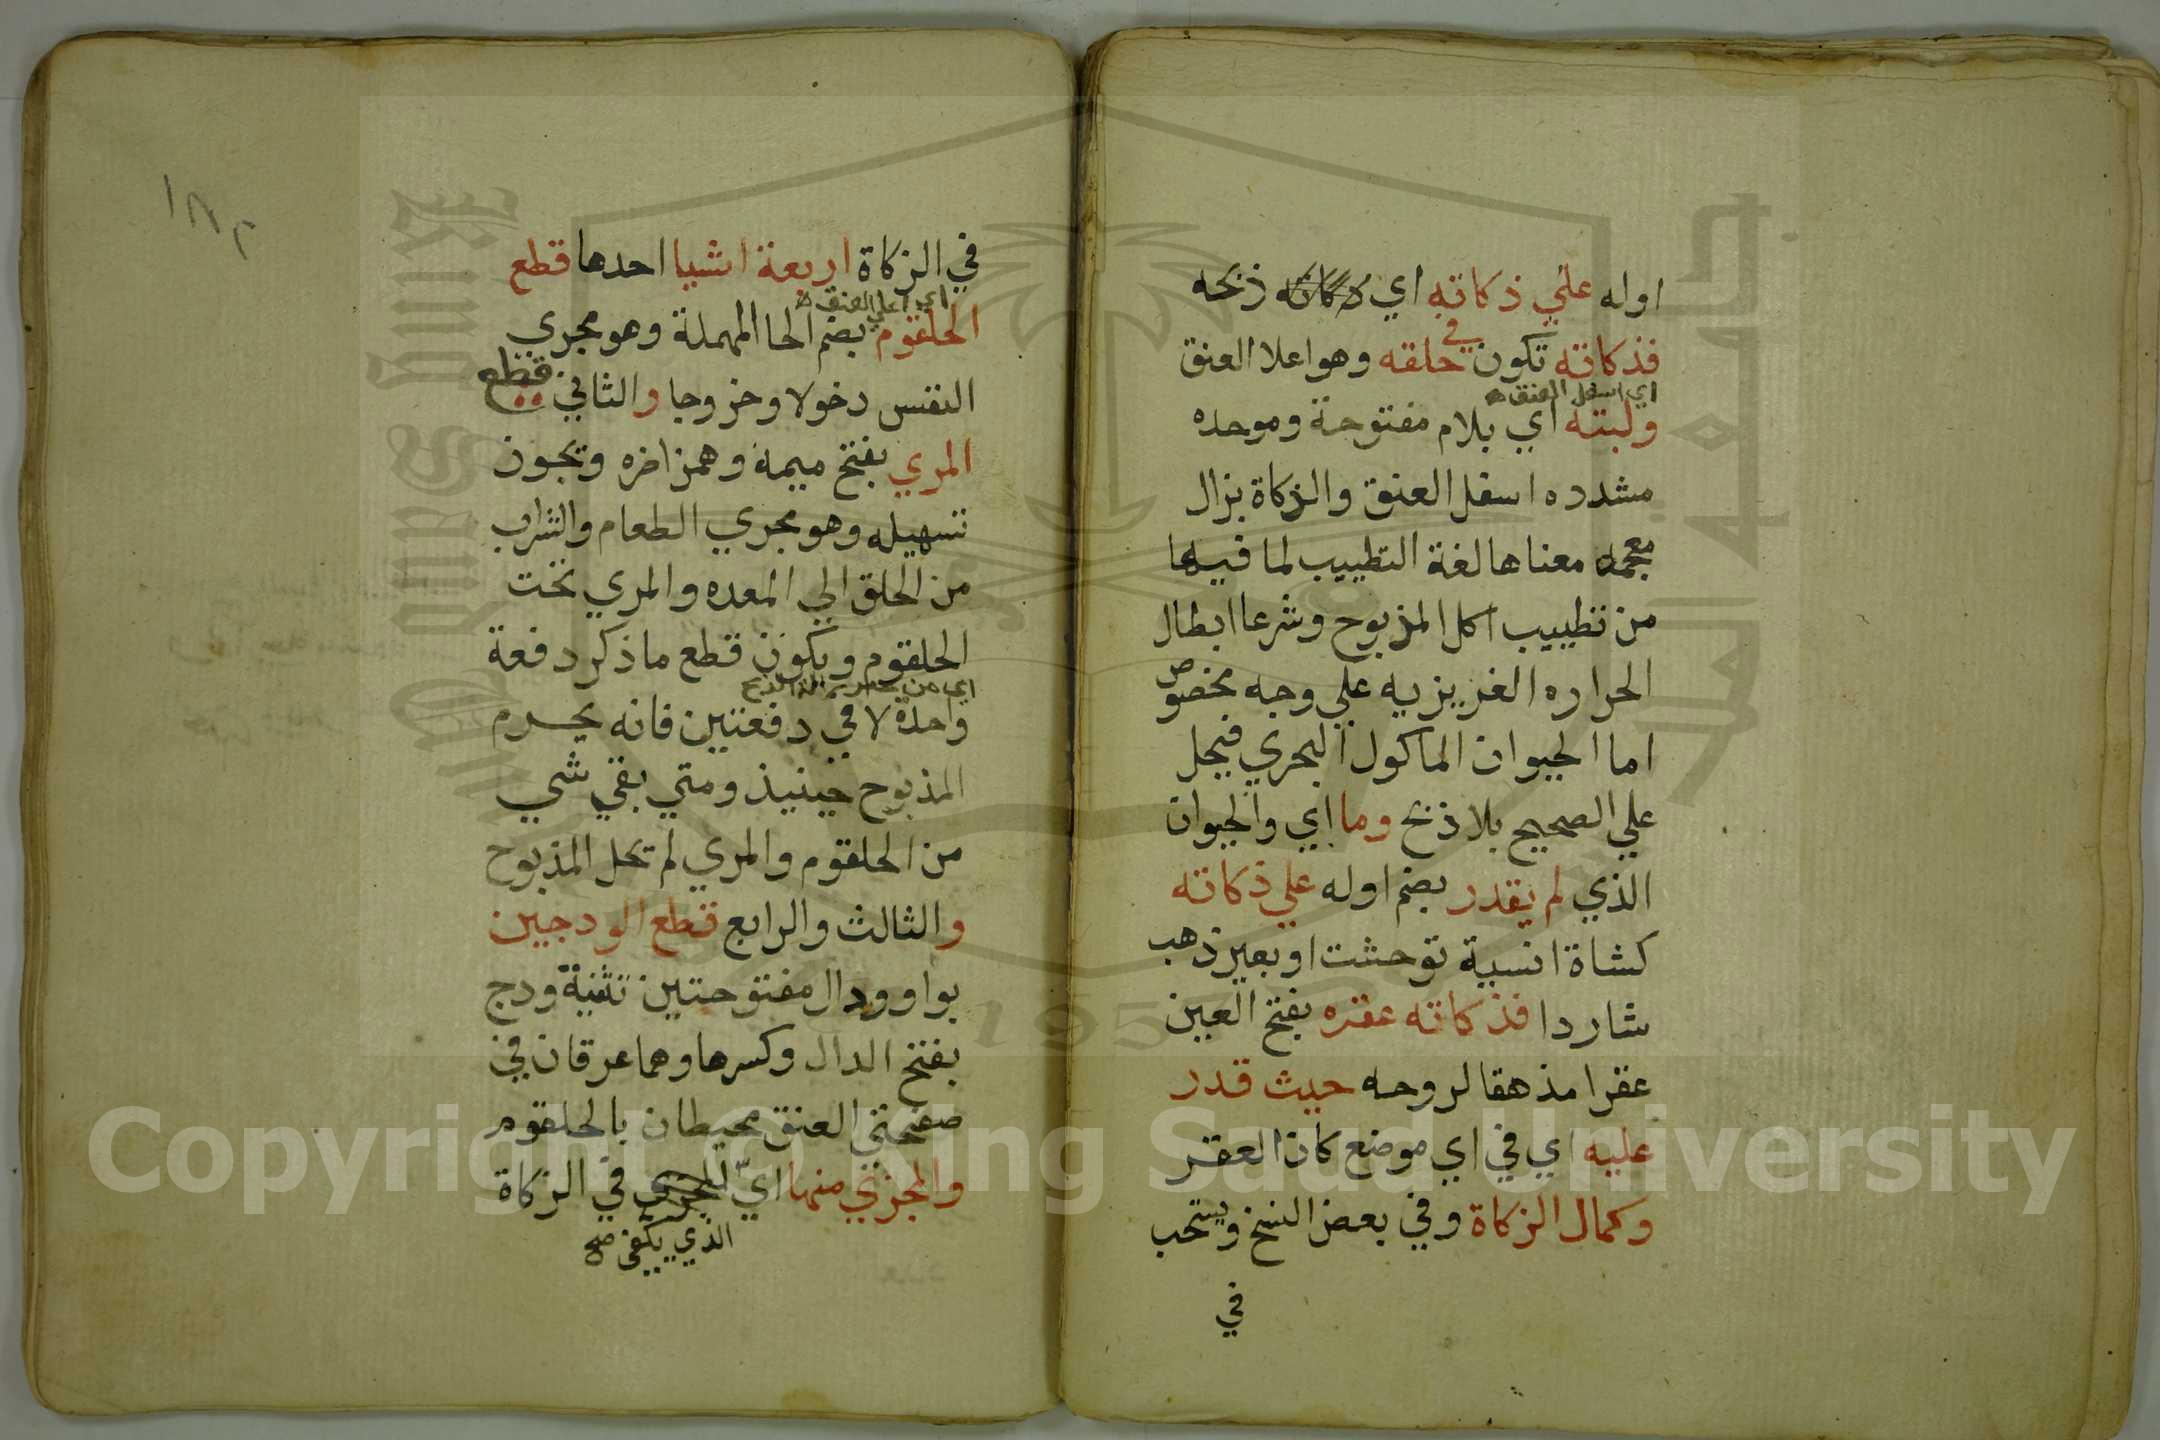 اوله علي ذكاته اي ذبحه
فذكاته تكون في حلقه وهو اعلا العنق
اي اسفل العنق
ولبته اي بلام مفتوحة وموحده
مشدده اسفل العنق والزكاة بزال
معجمه معناها لغة التطييب لما فيها
من تطييب اكل المذبوح وشرعا ابطال
الحراره الغريزيه علي وجه مخصوص
اما الحيوان الماكول البحري فيحل
علي الصحيح بلا ذبح وما اي والحيوان
الذي لم يقدر بضم اوله علي ذكاته
كشاة انسية توحشت او بعير ذهب
شاردا فذكاته عقره بفتح العين
عقرا مذهقا لروحه حيث قدر
عليه اي في اي موضع كان العقر
وكمال الزكاة وفي بعض النسخ ويستحب
في
١٨٢
في الزكاة اربعة اشيا احدها قطع
اي اعلي العنق
الحلقوم بضم الحا المهملة وهو مجري
النفس دخولا وخروجا والثاني قطع
المري بفتح ميمه وهمز اخره ويجوز
تسهيله وهو مجري الطعام والشراب
من الحلق الي المعده والمري تحت
الحلقوم ويكون قطع ما ذكر دفعة
واحدة لا في دفعتين فانه يحرم
المذبوح حينيذ ومتي بقي شي
من الحلقوم والمري لم تحل المذبوح
والثالث والرابع قطع الودجين
بواو ودال مفتوحتين تثنية ودج
بفتح الدال وكسرها وهما عرقان في
صفحتي العنق محيطان بالحلقوم
والمجزي منها اي في الزكاة
الذي يكفي صح
Copyright © King Saud University